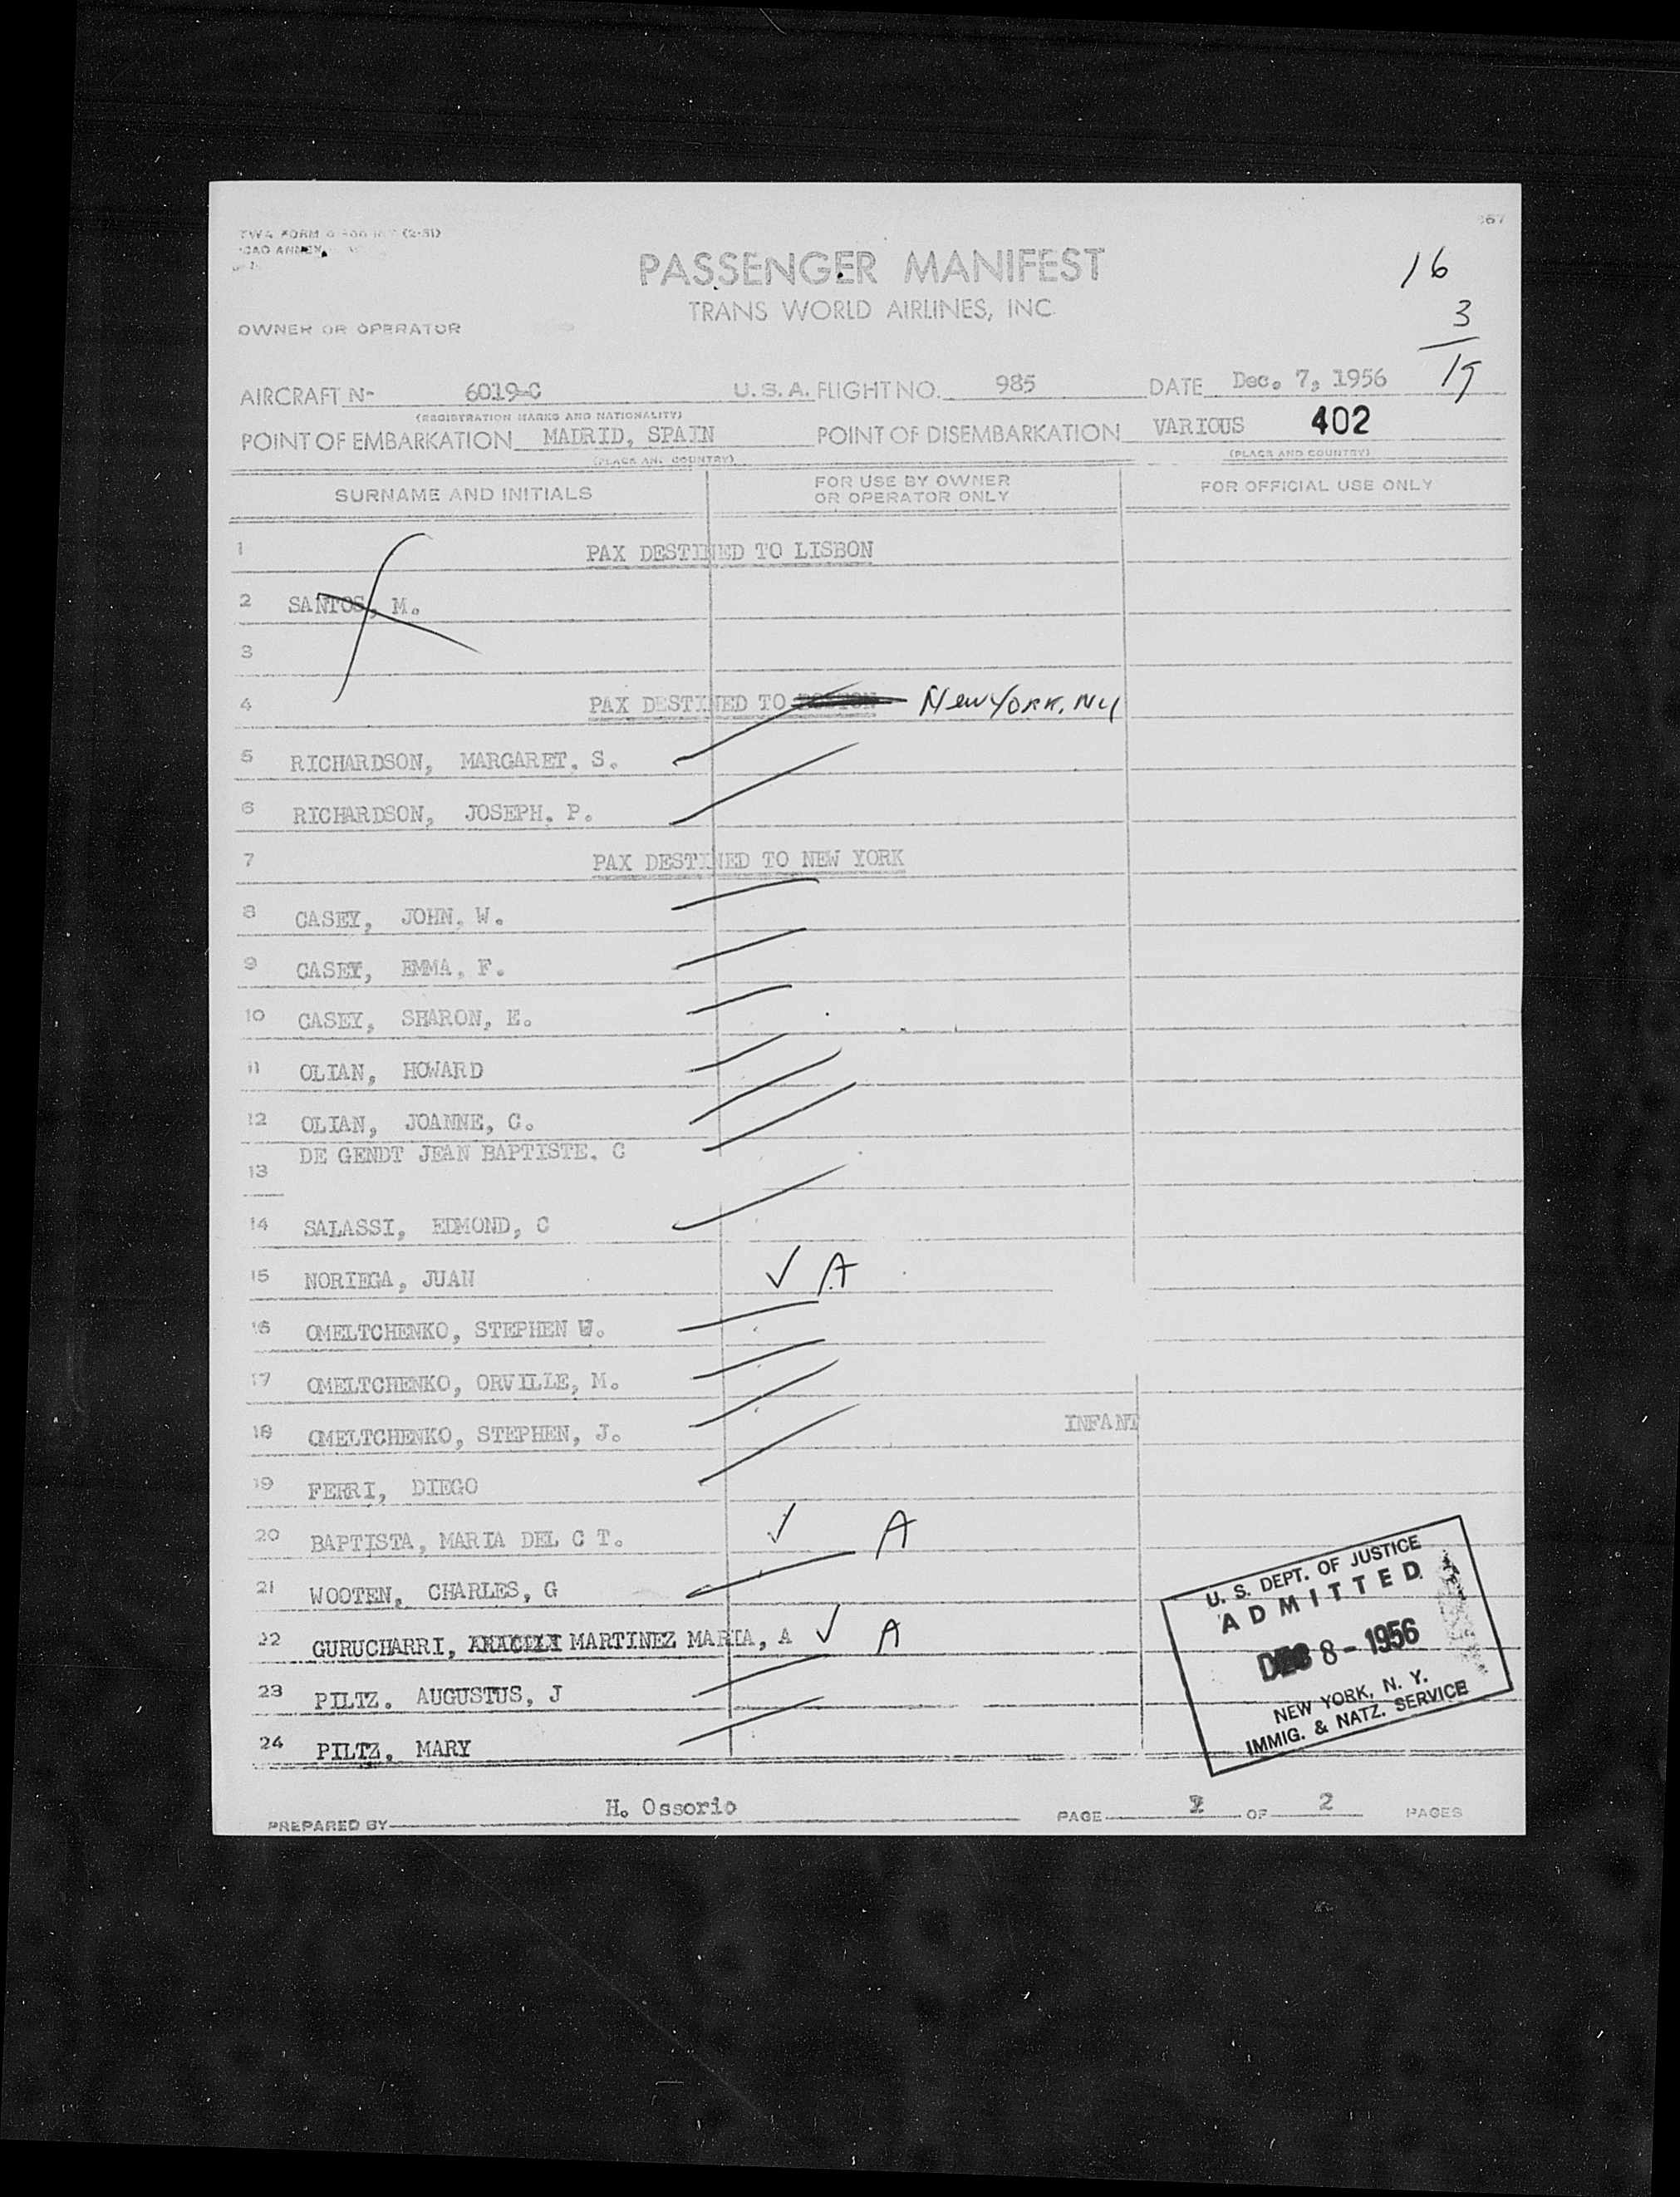 TWA FORM (2-51)
ICAO ANNEX
PASSENGER MANIFEST
TRANS WORLD AIRLINES, INC.
OWNER OR OPERATOR
67
16
3
19
AIRCRAFT Nº 6019-C U.S.A. FLIGHT NO. 985 DATE Dec. 7, 1956
(REGISTRATION MARKS AND NATIONALITY)
POINT OF EMBARKATION MADRID, SPAIN POINT OF DISEMBARKATION VARIOUS 402
(PLACE AND COUNTRY) (PLACE AND COUNTRY)
SURNAME AND INITIALS FOR USE BY OWNER OR OPERATOR ONLY FOR OFFICIAL USE ONLY
1 PAX DESTINED TO LISBON
2 SANTOS, M.
3
4 PAX DESTINED TO BOSTON New York, NY
5 RICHARDSON, MARGARET. S.
6 RICHARDSON, JOSEPH. P.
7 PAX DESTINED TO NEW YORK
8 CASEY, JOHN, W.
9 CASEY, EMMA, F.
10 CASEY, SHARON, E.
11 OLIAN, HOWARD
12 OLIAN, JOANNE, C.
13 DE GENDT JEAN BAPTISTE. C
14 SALASSI, EDMOND, C
15 NORIEGA, JUAN ✓ A
16 OMELTCHENKO, STEPHEN W.
17 OMELTCHENKO, ORVILLE, M.
18 OMELTCHENKO, STEPHEN, J. INFANT
19 FERRI, DIEGO
20 BAPTISTA, MARIA DEL C T. ✓ A
21 WOOTEN, CHARLES, G
22 GURUCHARRI, MARTINEZ MARIA, A ✓ A
23 PILTZ. AUGUSTUS, J
24 PILTZ, MARY
U. S. DEPT. OF JUSTICE
ADMITTED
DEC 8 - 1956
NEW YORK, N. Y.
IMMIG. & NATZ. SERVICE
PREPARED BY H. Ossorio PAGE 2 OF 2 PAGES